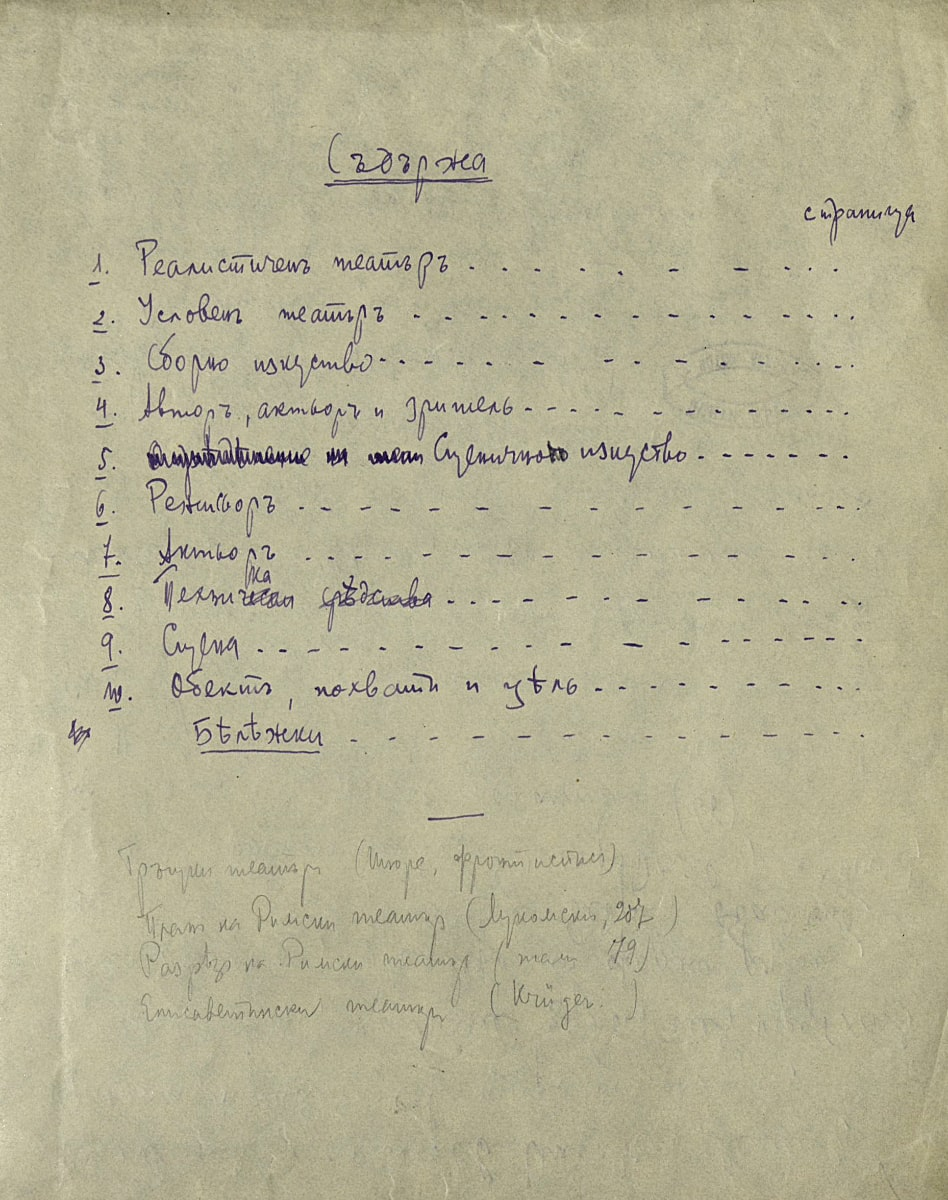 Съдържа
страница
1. Реалистиченъ театъръ . . . . . - - . . .
2. Условенъ театъръ - - - - - - - - - - - . . .
3. Сборно изкуство - - - - - - - - - - - . . .
4. Авторъ, актьоръ и зритель - - - - - - - - - - -
5. Сценично изкуство - - - - - - -
6. Режисьоръ - - - - - - - - - - - - - -
7. Актьоръ - - - - - - - - - - - - - -
8. Техника - - - - - - - - - - - -
9. Сцена - - - - - - - - - - - - - - -
10. Обектъ, похвати и цѣль - - - - - - - - -
Бѣлѣжки - - - - - - - - - - - - -
Гръцки театъръ (
Планъ на Римски театър (Лукомски, 207)
Разрѣз на Римски театър (там 79)
Елисаветински театър (Krüger )